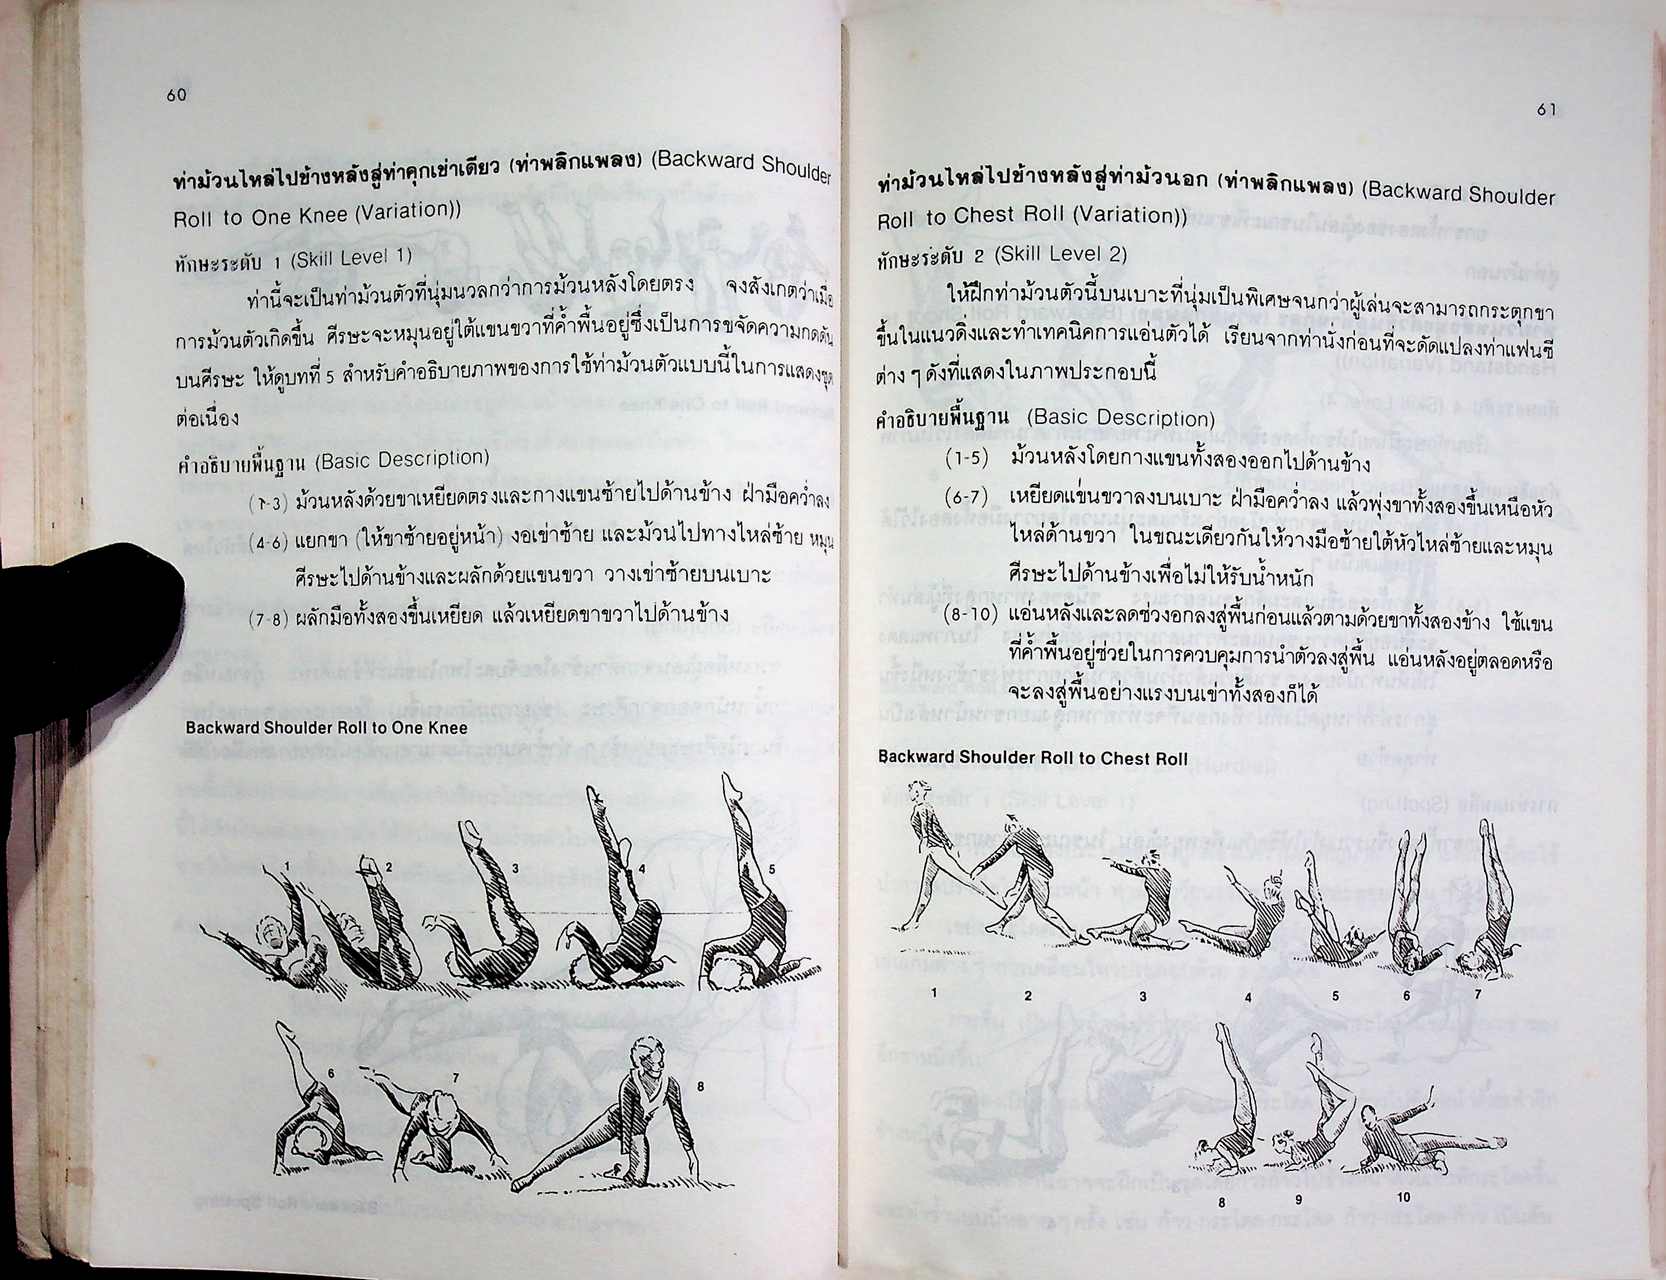 60
ท่าม้วนไหล่ไปข้างหลังสู่ท่าคุกเข่าเดียว (ท่าพลิกแพลง) (Backward Shoulder
Roll to One Knee (Variation))
ทักษะระดับ 1 (Skill Level 1)
ท่านี้จะเป็นท่าม้วนตัวที่นุ่มนวลกว่าการม้วนหลังโดยตรง จงสังเกตว่าเมื่อ
การม้วนตัวเกิดขึ้น ศีรษะจะหมุนอยู่ใต้แขนขวาที่ค้ำพื้นอยู่ซึ่งเป็นการขจัดความกดดัน
บนศีรษะ ให้ดูบทที่ 5 สำหรับคำอธิบายภาพของการใช้ท่าม้วนตัวแบบนี้ในการแสดงชุด
ต่อเนื่อง
คำอธิบายพื้นฐาน (Basic Description)
(1-3) ม้วนหลังด้วยขาเหยียดตรงและกางแขนซ้ายไปด้านข้าง ฝ่ามือคว่ำลง
(4-6) แยกขา (ให้ขาซ้ายอยู่หน้า) งอเข่าซ้าย และม้วนไปทางไหล่ซ้าย หมุน
ศีรษะไปด้านข้างและผลักด้วยแขนขวา วางเข่าซ้ายบนเบาะ
(7-8) ผลักมือทั้งสองขึ้นเหยียด แล้วเหยียดขาขวาไปด้านข้าง
Backward Shoulder Roll to One Knee
1 2 3 4 5
6 7 8
61
ท่าม้วนไหล่ไปข้างหลังสู่ท่าม้วนอก (ท่าพลิกแพลง) (Backward Shoulder
Roll to Chest Roll (Variation))
ทักษะระดับ 2 (Skill Level 2)
ให้ฝึกท่าม้วนตัวนี้บนเบาะที่นุ่มเป็นพิเศษจนกว่าผู้เล่นจะสามารถกระตุกขา
ขึ้นในแนวดิ่งและทำเทคนิคการแอ่นตัวได้ เรียนจากท่านั่งก่อนที่จะดัดแปลงท่าแฟนซี
ต่าง ๆ ดังที่แสดงในภาพประกอบนี้
คำอธิบายพื้นฐาน (Basic Description)
(1-5) ม้วนหลังโดยกางแขนทั้งสองออกไปด้านข้าง
(6-7) เหยียดแขนขวาลงบนเบาะ ฝ่ามือคว่ำลง แล้วพุ่งขาทั้งสองขึ้นเหนือหัว
ไหล่ด้านขวา ในขณะเดียวกันให้วางมือซ้ายใต้หัวไหล่ซ้ายและหมุน
ศีรษะไปด้านข้างเพื่อไม่ให้รับน้ำหนัก
(8-10) แอ่นหลังและลดช่วงอกลงสู่พื้นก่อนแล้วตามด้วยขาทั้งสองข้าง ใช้แขน
ที่ค้ำพื้นอยู่ช่วยในการควบคุมการนำตัวลงสู่พื้น แอ่นหลังอยู่ตลอดหรือ
จะลงสู่พื้นอย่างแรงบนเข่าทั้งสองก็ได้
Backward Shoulder Roll to Chest Roll
1 2 3 4 5 6 7
8 9 10